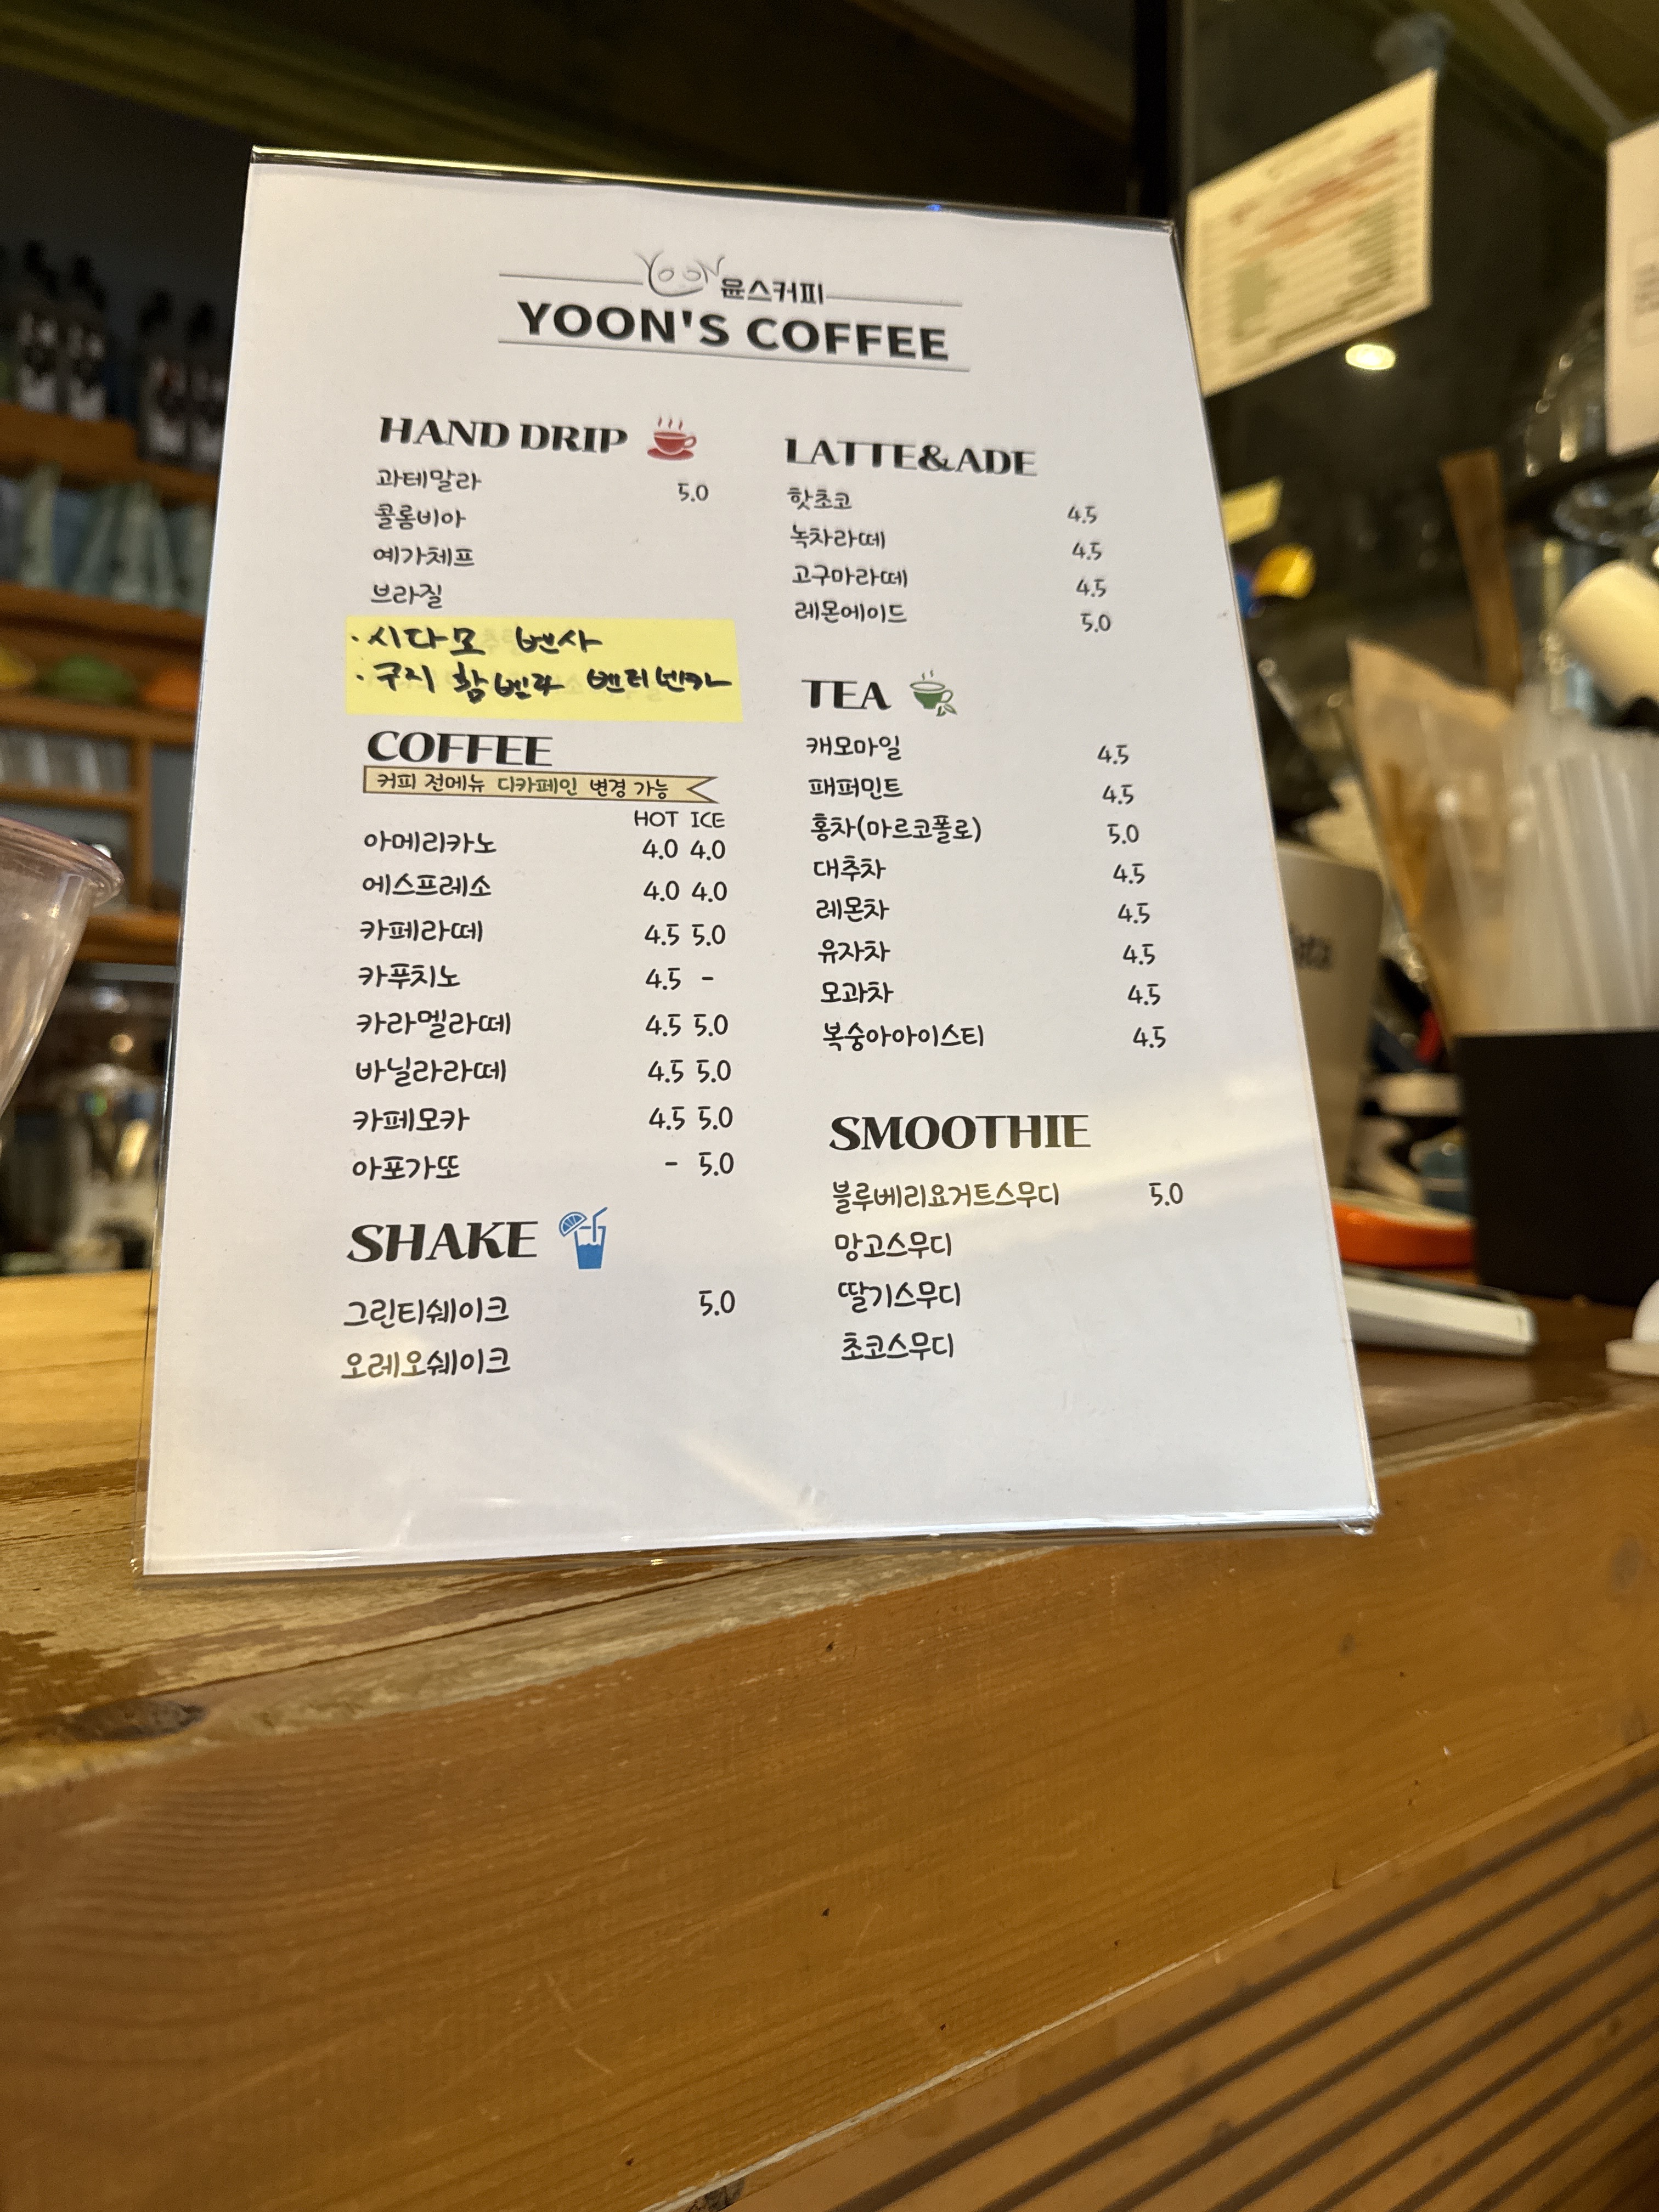 YOON 윤스커피
YOON'S COFFEE
HAND DRIP
과테말라 5.0
콜롬비아
예가체프
브라질
· 시다모 벤사
· 구지 함벨라 벤티넨카
COFFEE
커피 전메뉴 디카페인 변경 가능
HOT ICE
아메리카노 4.0 4.0
에스프레소 4.0 4.0
카페라떼 4.5 5.0
카푸치노 4.5 -
카라멜라떼 4.5 5.0
바닐라라떼 4.5 5.0
카페모카 4.5 5.0
아포가또 - 5.0
SHAKE
그린티쉐이크 5.0
오레오쉐이크
LATTE&ADE
핫초코 4.5
녹차라떼 4.5
고구마라떼 4.5
레몬에이드 5.0
TEA
캐모마일 4.5
패퍼민트 4.5
홍차(마르코폴로) 5.0
대추차 4.5
레몬차 4.5
유자차 4.5
모과차 4.5
복숭아아이스티 4.5
SMOOTHIE
블루베리요거트스무디 5.0
망고스무디
딸기스무디
초코스무디